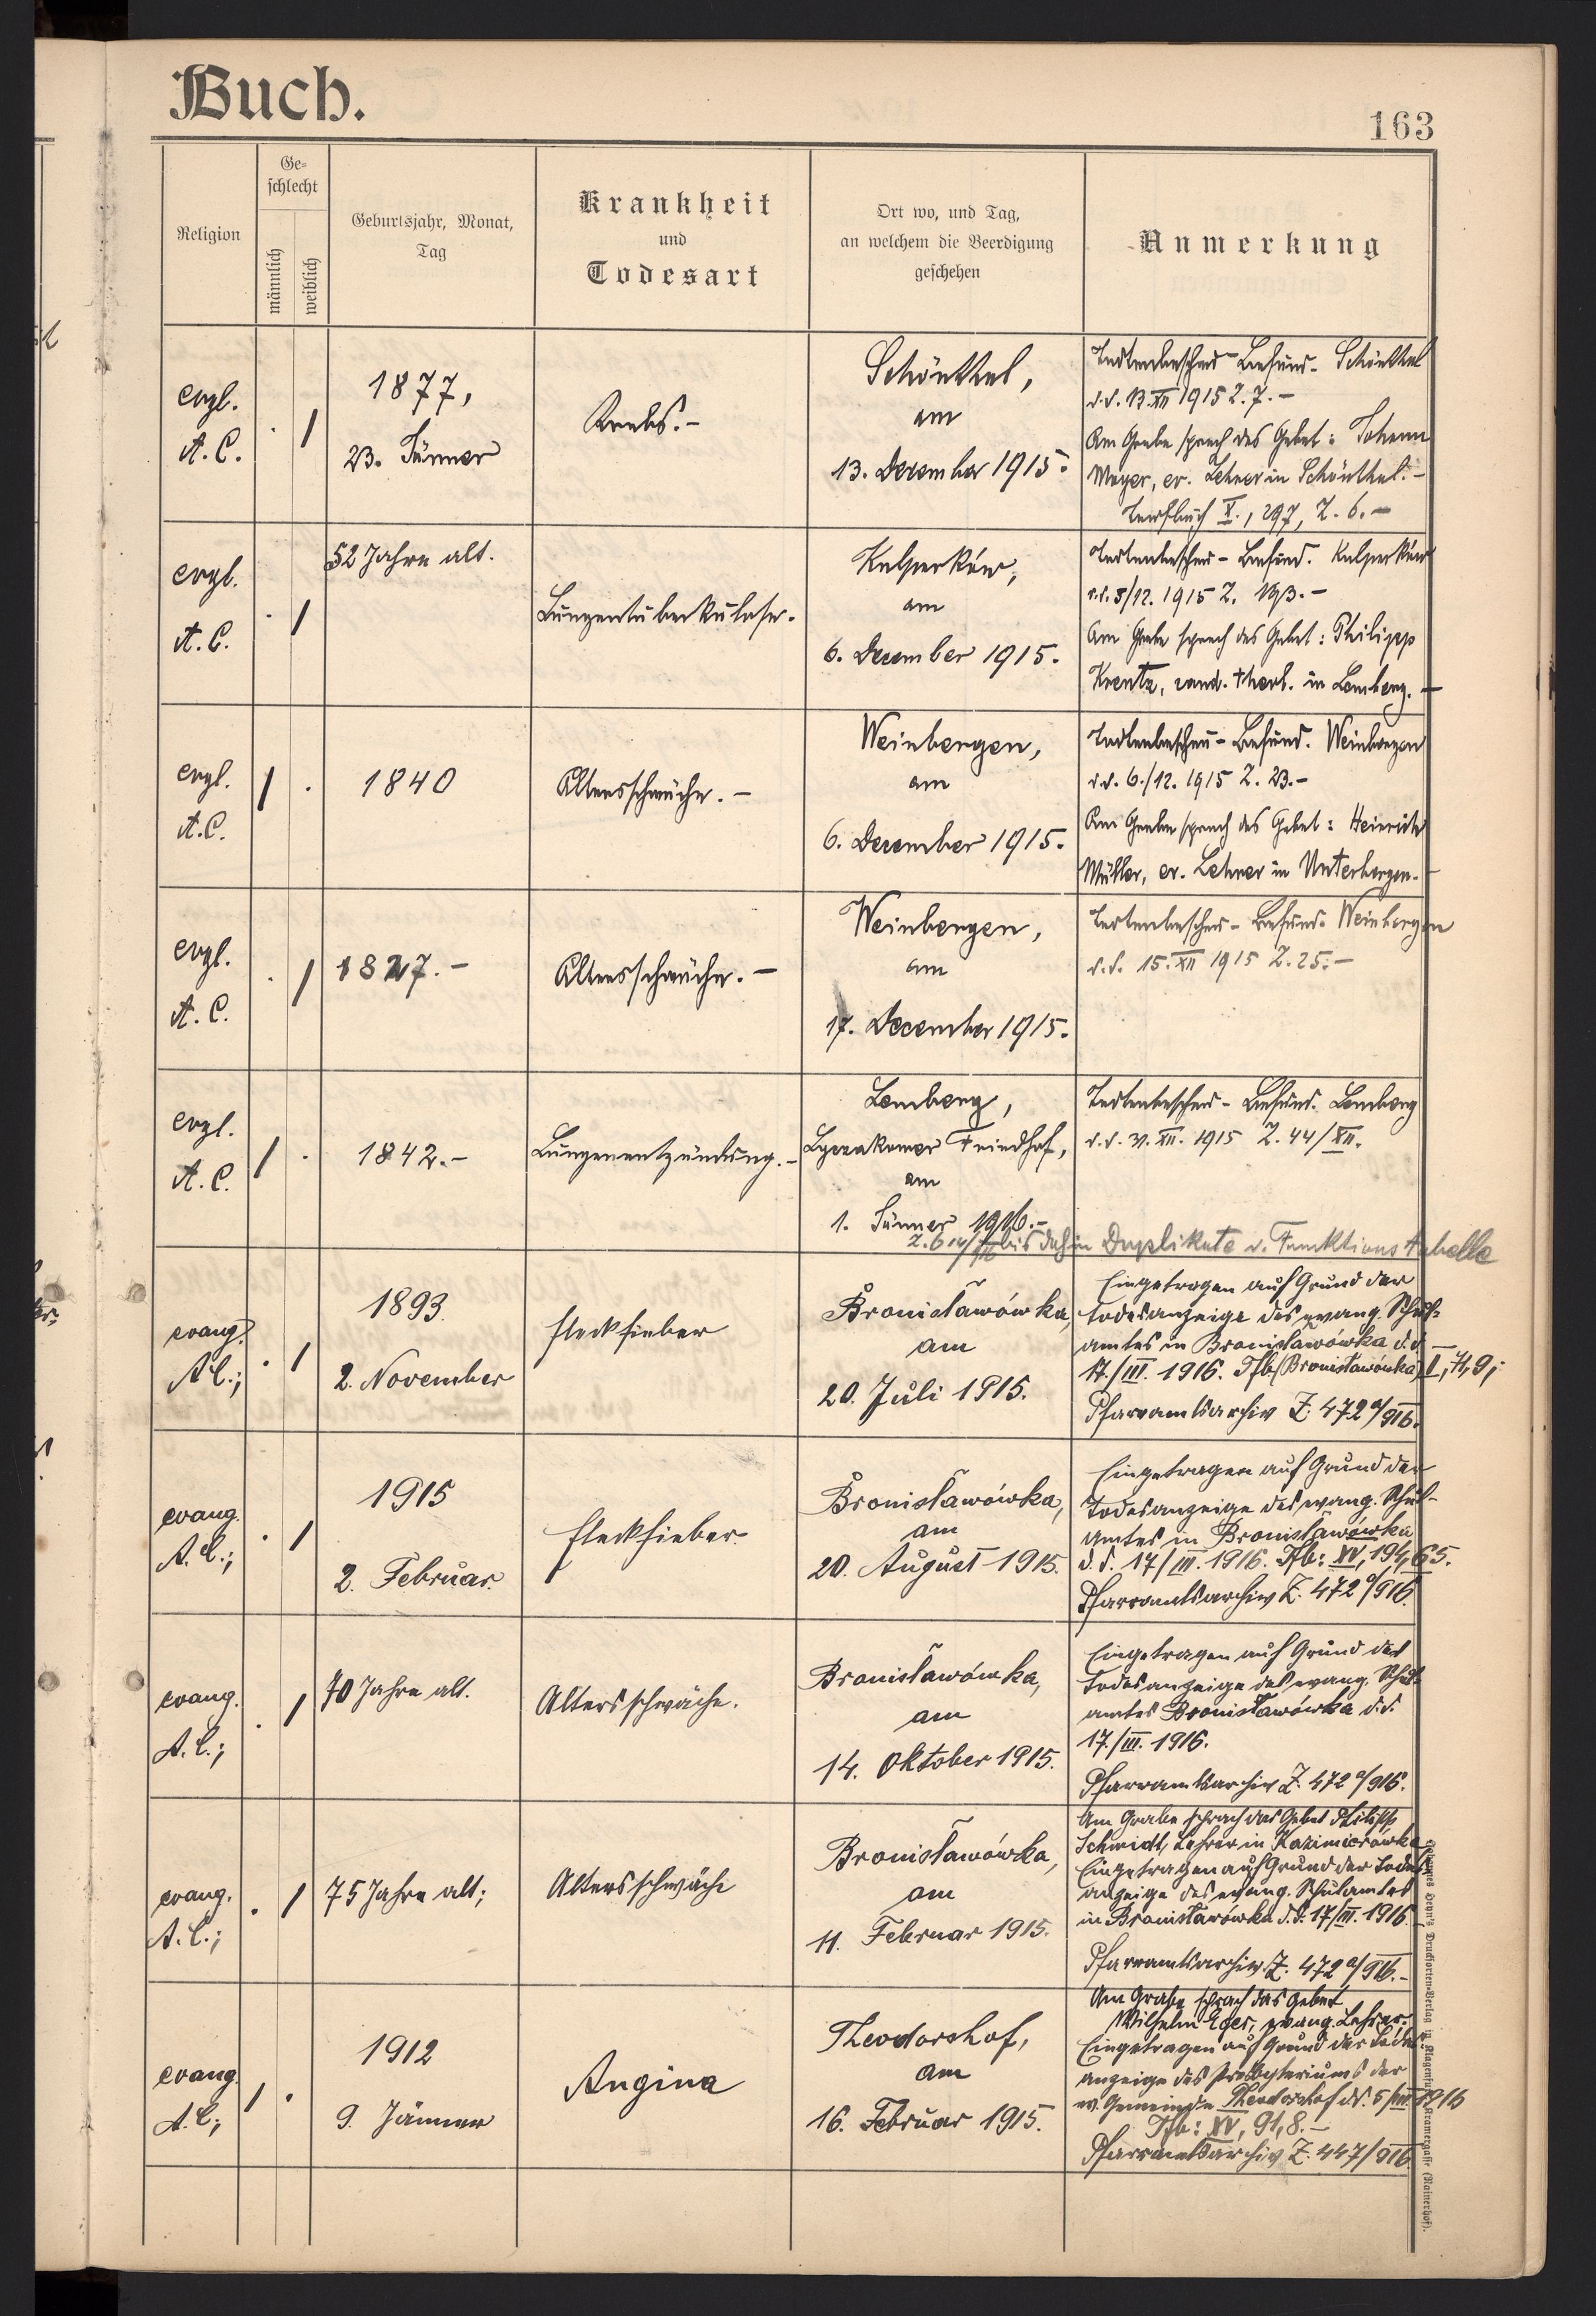 Buch.
163
Religion
Ge-
schlecht
männlich
weiblich
Geburtsjahr, Monat,
Tag
Krankheit
und
Todesart
Ort wo, und Tag,
an welchem die Beerdigung
geschehen
Anmerkung
evgl.
A. C.
1877,
23. Jänner
Krebs. -
Schönthal,
am
13. Dezember 1915.
Todtenbeschau-Befund. Schönthal
d. d. 13. XII 1915 Z. 7. -
Am Grabe sprach das Gebet: Johann
Mayer, ev. Lehrer in Schönthal. -
Taufbuch X., 297, Z. 6. -
evgl.
A. C.
52 Jahre alt.
Lungentuberkulose.
Kulparków,
am
6. Dezember 1915.
Todtenbeschau-Befund. Kulparków
d. d. 5/12. 1915 Z.
Am Grabe sprach das Gebet: Philipp
Krentz, cand. theol. in Lemberg. -
evgl.
A. C.
1840
Altersschwäche. -
Weinbergen,
am
6. Dezember 1915.
Todtenbeschau-Befund. Weinbergen
d. d. 6./12. 1915 Z. 23. -
Am Grabe sprach das Gebet: Heinrich
Müller, ev. Lehrer in Unterbergen. -
evgl.
A. C.
1827. -
Altersschwäche. -
Weinbergen,
am
17. Dezember 1915.
Todtenbeschau-Befund. Weinbergen
d. d. 15. XII 1915 Z. 25. -
evgl.
A. C.
1842. -
Lungenentzündung. -
Lemberg,
Lyczakower Friedhof,
am
1. Jänner 1916. -
Todtenbeschau-Befund. Lemberg
d. d. 31. XII. 1915 Z. 44/XII.
bis dahin Duplikate v. Funktionstabelle
evang.
A. C.;
1893.
2. November
Fleckfieber
Bronisławówka,
am
20. Juli 1915.
Eingetragen auf Grund der
Todesanzeige des evang. Schul-
amtes in Bronisławówka d. d.
17./III. 1916. Tfb. (Bronisławówka) II, 71, 9;
Pfarramtsarchiv Z. 472 a/916.
evang.
A. C.;
1915
2. Februar.
Fleckfieber.
Bronisławówka,
am
20. August 1915.
Eingetragen auf Grund der
Todesanzeige des evang. Schul-
amtes in Bronisławówka
d. d. 17/III. 1916. Tfb: XV, 194, 65.
Pfarramtsarchiv Z. 472 a/916.
evang.
A. C.;
70 Jahre alt.
Altersschwäche.
Bronisławówka,
am
14. Oktober 1915.
Eingetragen auf Grund der
Todesanzeige des evang. Schul-
amtes Bronisławówka d. d.
17./III. 1916.
Pfarramtsarchiv Z. 472 a/916.
evang.
A. C.;
75 Jahre alt;
Altersschwäche
Bronisławówka,
am
11. Februar 1915.
Am Grabe sprach das Gebet Philipp
Schmidt, Lehrer in Kazimierówka
Eingetragen auf Grund der Todes-
anzeige des evang. Schulamtes
in Bronisławówka d. d. 17/III. 1916.
Pfarramtsarchiv Z. 472 a/916. -
evang.
A. C;
1912
9. Jänner
Angina
Theodorshof,
am
16. Februar 1915.
Am Grabe sprach das Gebet
Wilhelm Eger, evang. Lehrer.
Eingetragen auf Grund der Todes-
anzeige des Presbyteriums der
ev. Gemeinde Theodorshof dd. 5/III. 1916
Tfb: XV, 91, 8. -
Pfarramtsarchiv Z. 447/916.